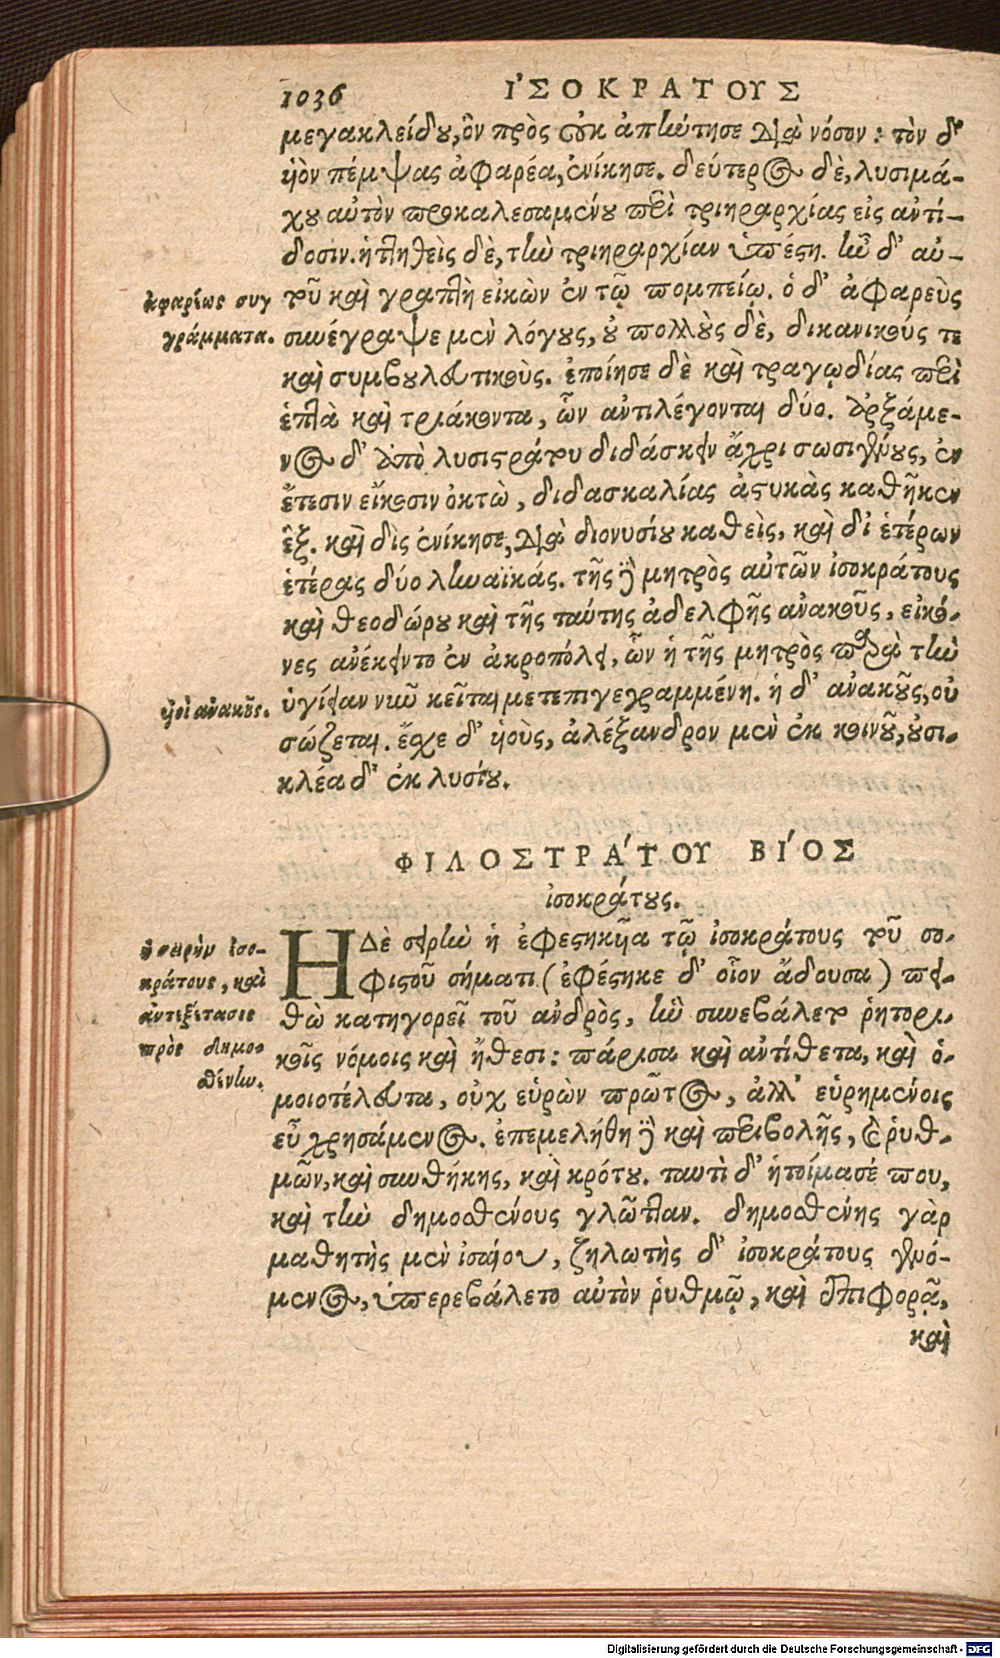 1036
ἸΣΟΚΡΑΤΟΥΣ
μεγακλείδου, ὃν πρὸς οὐκ ἀπήντησε διὰ νόσον: τὸν δ'
ὑὸν πέμψας ἀφαρέα, ἐνίκησε. δεύτερος δὲ, λυσιμά-
χου αὐτὸν προκαλεσαμένου περὶ τριηραρχίας εἰς ἀντί-
δοσιν. ἡττηθεὶς δὲ, τὴν τριηραρχίαν ὑπέστη. ἦν δ' αὐ-
τοῦ καὶ γραπτὴ εἰκὼν ἐν τῷ πομπείῳ. ὁ δ' ἀφαρεὺς
ἀφαρέως συγ
γράμματα.
συνέγραψε μὲν λόγους, οὐ πολλοὺς δὲ, δικανικούς τε
καὶ συμβουλευτικοὺς. ἐποίησε δὲ καὶ τραγῳδίας περὶ
ἑπτὰ καὶ τριάκοντα, ὧν ἀντιλέγονται δύο. ἀρξάμε-
νος δ' ἀπὸ λυσιστράτου διδάσκειν ἄχρι σωσιγένους, ἐν
ἔτεσιν εἴκοσιν ὀκτὼ, διδασκαλίας ἀστυκὰς καθῆκεν
ἓξ. καὶ δὶς ἐνίκησε, διὰ διονυσίου καθεὶς, καὶ δι' ἑτέρων
ἑτέρας δύο ληναϊκάς. τῆς δὲ μητρὸς αὐτῶν ἰσοκράτους
καὶ θεοδώρου καὶ τῆς ταύτης ἀδελφῆς ἀνακοῦς, εἰκό-
νες ἀνέκειντο ἐν ἀκροπόλει, ὧν ἡ τῆς μητρὸς παρὰ τὴν
ὑγίειαν νῦν κεῖται μετεπιγεγραμμένη. ἡ δ' ἀνακοῦς, οὐ
ὑοὶ ἀνακοῦς.
σώζεται. ἔσχε δ' ὑοὺς, ἀλέξανδρον μὲν ἐκ κοινοῦ, σωσι-
κλέα δ' ἐκ λυσίου.
ΦΙΛΟΣΤΡΑΤΟΥ ΒΙΟΣ
ἰσοκράτους.
ἡ σειρὴν ἰσο-
κράτους, καὶ
ἀντεξέτασις
πρὸς δημοσ
θένην.
Η ΔΕ σειρὴν ἡ ἐφεστηκυῖα τῷ ἰσοκράτους τοῦ σο-
φιστοῦ σήματι (ἐφέστηκε δ' οἷον ᾄδουσα) πει-
θὼ κατηγορεῖ τοῦ ἀνδρὸς, ἣν συνεβάλετο ῥητορι-
κοῖς νόμοις καὶ ἤθεσι: πάρισα καὶ ἀντίθετα, καὶ ὁ-
μοιοτέλευτα, οὐχ εὑρὼν πρῶτος, ἀλλ' εὑρημένοις
εὖ χρησάμενος. ἐπεμελήθη δὲ καὶ περιβολῆς, καὶ ῥυθ-
μῶν, καὶ συνθήκης, καὶ κρότου. ταυτὶ δ' ἡτοίμασέ που,
καὶ τὴν δημοσθένους γλῶτταν. δημοσθένης γὰρ
μαθητὴς μὲν ἰσαίου, ζηλωτὴς δ' ἰσοκράτους γενό-
μενος, ὑπερεβάλετο αὐτὸν ῥυθμῷ, καὶ ἐπιφορᾷ,
καὶ
Digitalisierung gefördert durch die Deutsche Forschungsgemeinschaft - DFG